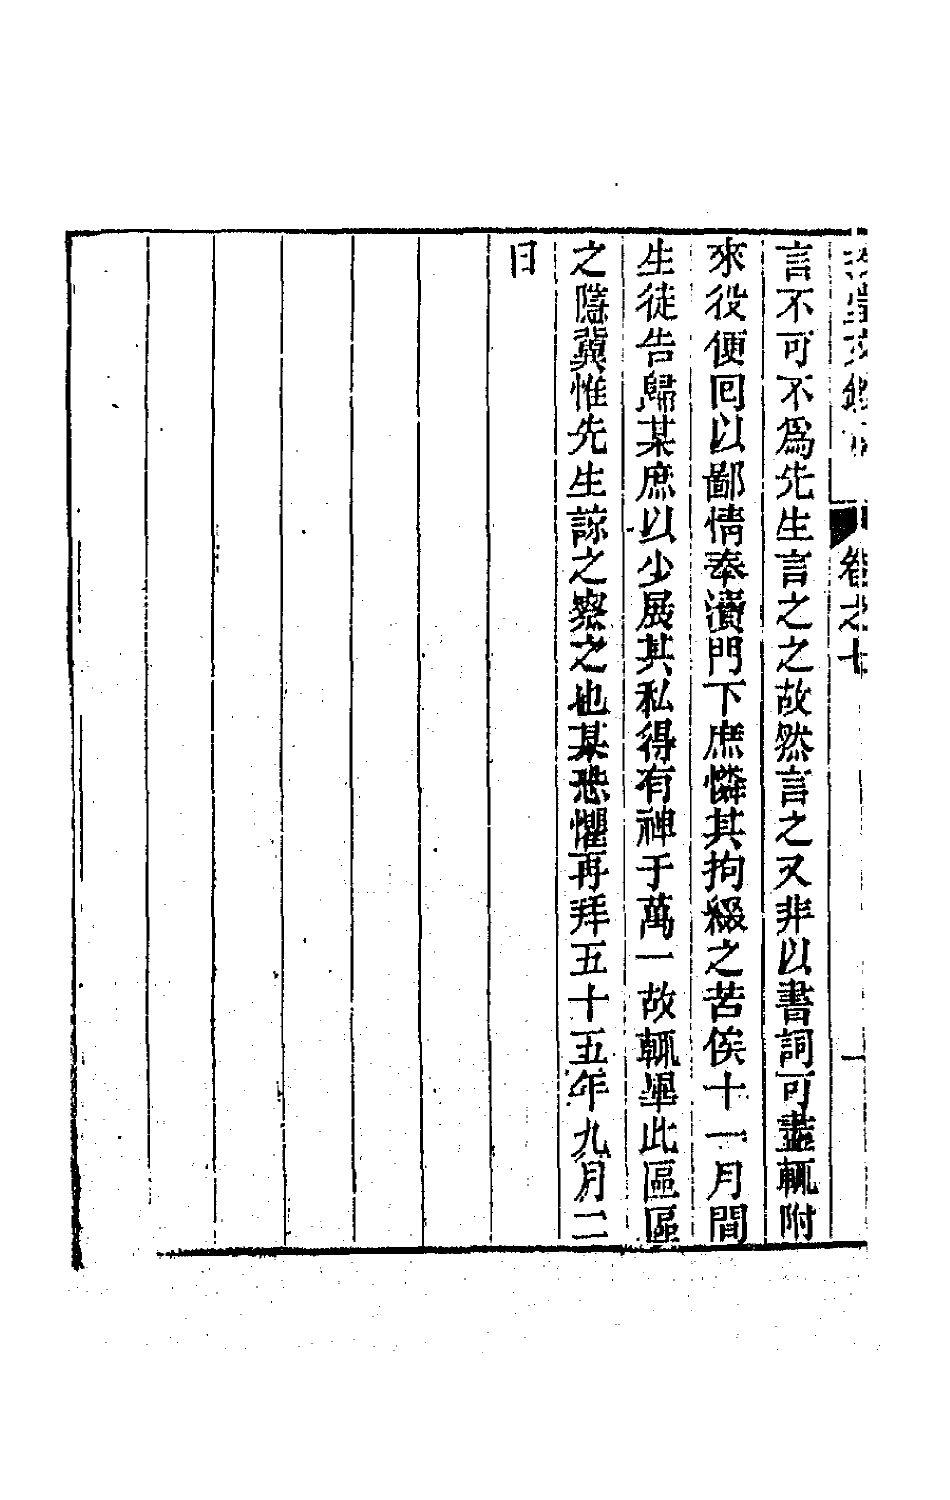 卷之七 一
言不可不為先生言之之故然言之又非以書詞可盡輒附
來役便回以鄙情奉瀆門下庶憐其拘綴之苦俟十一月間
生徒告歸某庶以少展其私得有神于萬一故輒畢此區區
之隱冀惟先生諒之察之也某恐懼再拜五十五年九月二
日